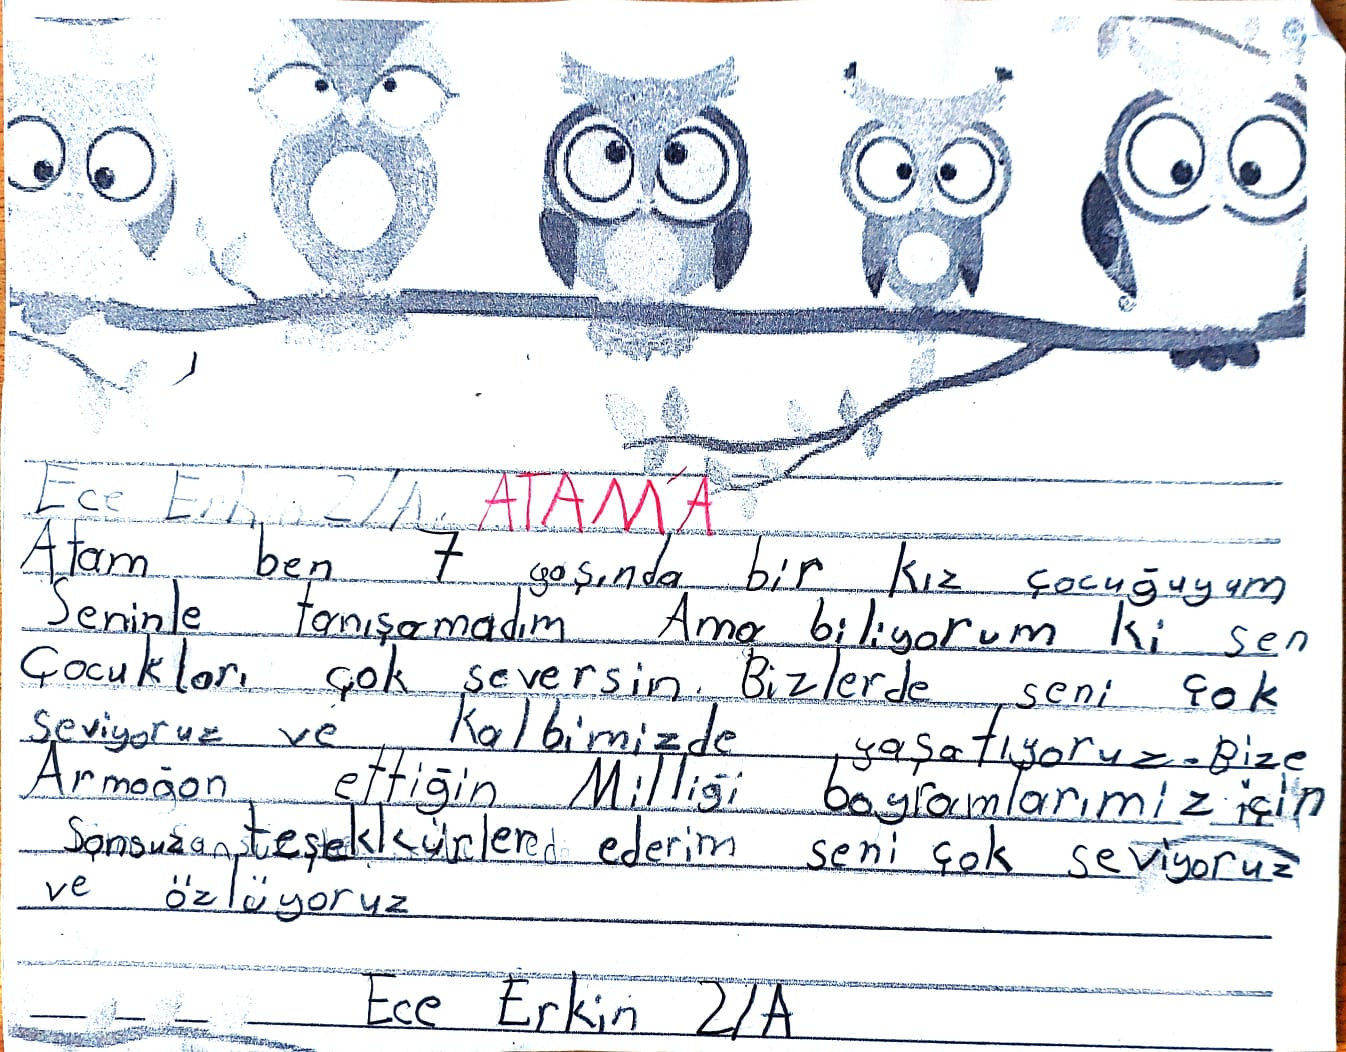 Ece Erkin 2/A. ATAM'A
Atam ben 7 yaşında bir kız çocuğuyum
Seninle tanışamadım Ama biliyorum ki sen
Çocukları çok seversin. Bizlerde seni çok
seviyoruz ve kalbimizde yaşatıyoruz. Bize
Armağan ettiğin Milliği bayramlarımız için
teşekkürler ederim seni çok seviyoruz
ve özlüyoruz
Ece Erkin 2/A